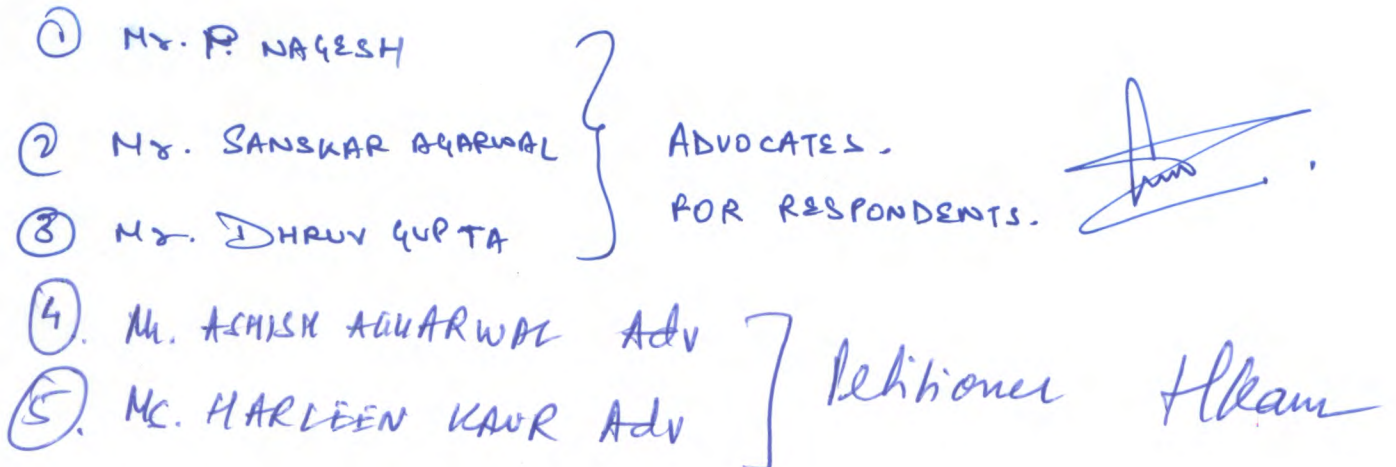 ① Mr. P. NAGESH
② Mr. SANSKAR AGARWAL
③ Mr. DHRUV GUPTA
ADVOCATES.
FOR RESPONDENTS.
④. Mr. ASHISH AGGARWAL Adv
⑤. Ms. HARLEEN KAUR Adv
Petitioner HKaur